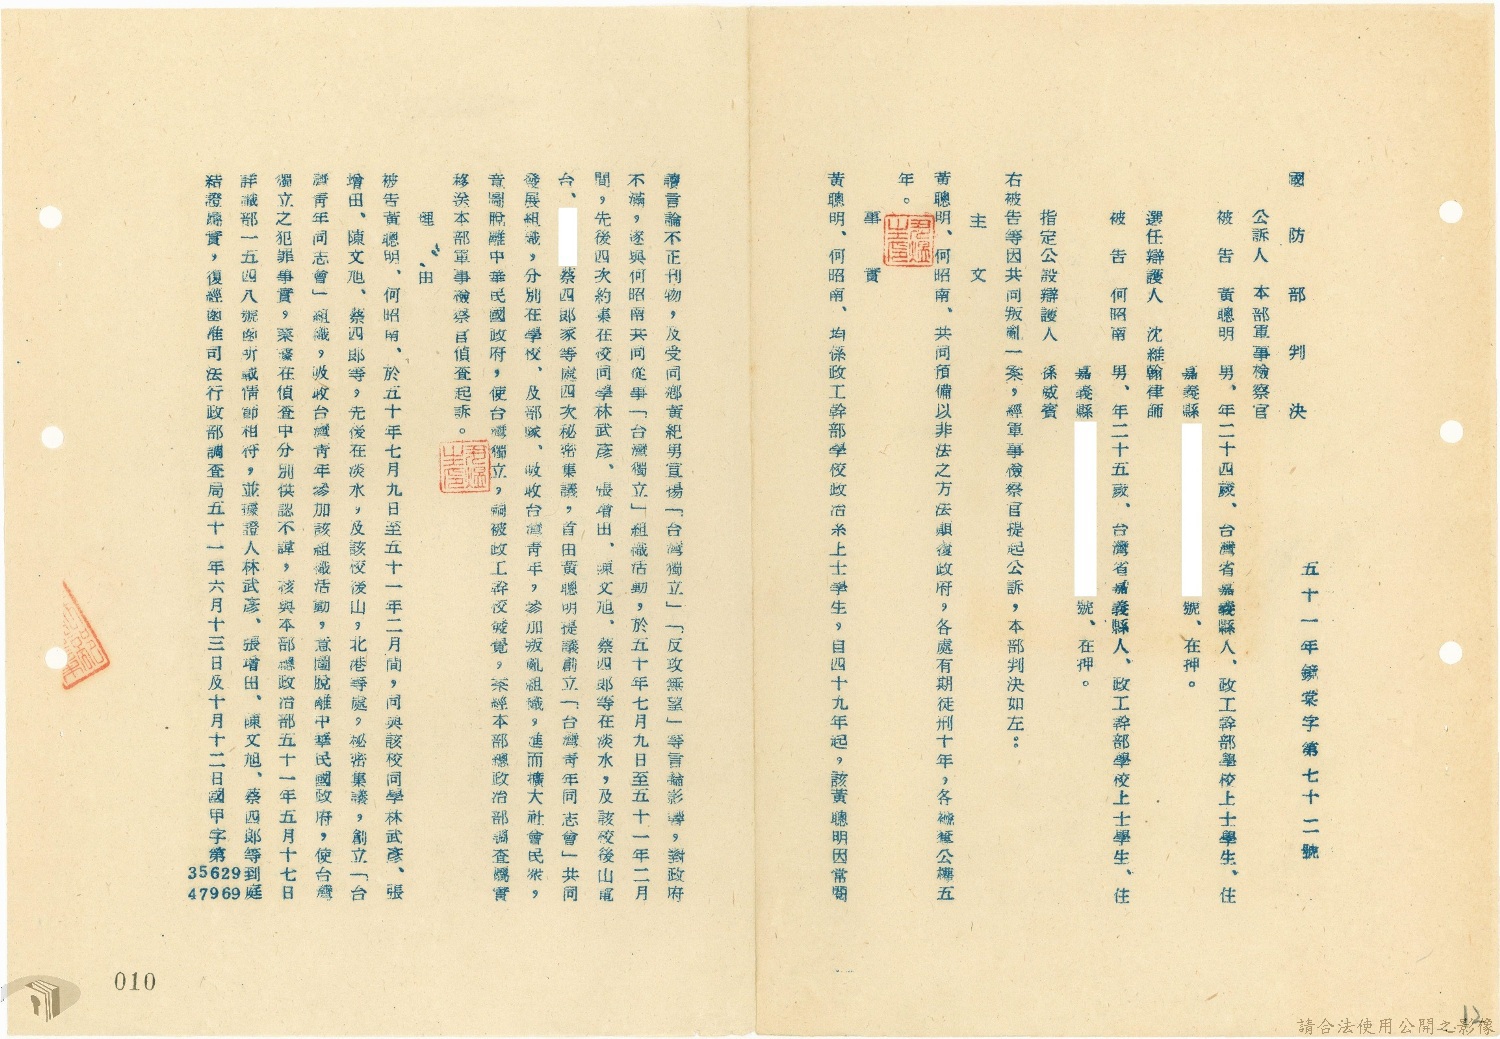 國防部判決
五十一年鏡棠字第七十二號
公訴人 本部軍事檢察官
被告 黃聰明 男、年二十四歲、台灣省嘉義縣人、政工幹部學校上士學生、住
嘉義縣 號、在押。
選任辯護人 沈維翰律師
被告 何昭南 男、年二十五歲、台灣省嘉義縣人、政工幹部學校上士學生、住
嘉義縣 號、在押。
指定公設辯護人 孫威賓
右被告等因共同叛亂一案，經軍事檢察官提起公訴，本部判決如左：
主文
黃聰明、何昭南、共同預備以非法之方法顛覆政府，各處有期徒刑十年，各褫奪公權五
年。
事實
黃聰明、何昭南、均係政工幹部學校政治系上士學生，自四十九年起，該黃聰明因常閱
讀言論不正刊物，及受同鄉黃紀男宣揚「台灣獨立」「反攻無望」等言論影響，對政府
不滿，遂與何昭南共同從事「台灣獨立」組織活動，於五十年七月九日至五十一年二月
間，先後四次約集在校同學林武彥、張增田、陳文旭、蔡四郎等在淡水，及該校後山電
台、 蔡四郎家等處四次秘密集議，首由黃聰明提議創立「台灣青年同志會」共同
發展組織，分別在學校、及部隊、吸收台灣青年，參加叛亂組織，進而擴大社會民眾，
意圖脫離中華民國政府，使台灣獨立，嗣被政工幹校發覺，案經本部總政治部調查屬實
移送本部軍事檢察官偵查起訴。
理由
被告黃聰明、何昭南、於五十年七月九日至五十一年二月間，同與該校同學林武彥、張
增田、陳文旭、蔡四郎等，先後在淡水，及該校後山，北港等處，秘密集議，創立「台
灣青年同志會」組織，吸收台灣青年參加該組織活動，意圖脫離中華民國政府，使台灣
獨立之犯罪事實，業據在偵查中分別供認不諱，核與本部總政治部五十一年五月十七日
詳識部一五四八號函所載情節相符，並據證人林武彥、張增田、陳文旭、蔡四郎等到庭
結證屬實，復經函准司法行政部調查局五十一年六月十三日及十月十二日國甲字第
35629
47969
010
12
請合法使用公開之影像